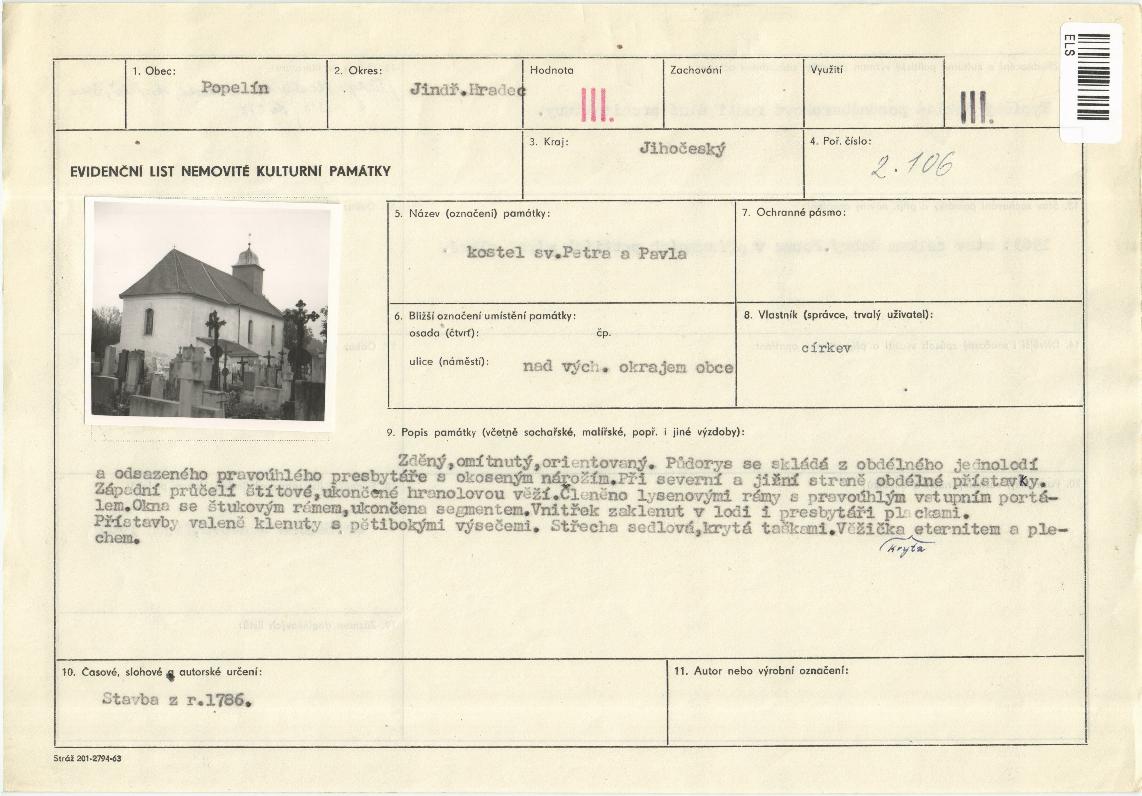 ELS
1. Obec:
Popelín
2. Okres:
Jindř.Hradec
Hodnota
III.
Zachování
Využití
III.
3. Kraj:
Jihočeský
4. Poř. číslo:
2.106
EVIDENČNÍ LIST NEMOVITÉ KULTURNÍ PAMÁTKY
5. Název (označení) památky:
kostel sv.Petra a Pavla
7. Ochranné pásmo:
6. Bližší označení umístění památky:
osada (čtvrť):
čp.
ulice (náměstí):
nad vých. okrajem obce
8. Vlastník (správce, trvalý uživatel):
církev
9. Popis památky (včetně sochařské, malířské, popř. i jiné výzdoby):
Zděný,omítnutý,orientovaný. Půdorys se skládá z obdélného jednolodí
a odsazeného pravoúhlého presbytáře s okoseným nárožím.Při severní a jižní straně obdélné přístavky.
Západní průčelí štítové,ukončené hranolovou věží.Členěno lysenovými rámy s pravoúhlým vstupním portá-
lem.Okna se štukovým rámem,ukončena segmentem.Vnitřek zaklenut v lodi i presbytáři plackami.
Přístavby valeně klenuty s pětibokými výsečemi. Střecha sedlová,krytá taškami.Věžička eternitem a ple-
krytá
chem.
10. Časové, slohové a autorské určení:
Stavba z r.1786.
11. Autor nebo výrobní označení:
Stráž 201-2794-63